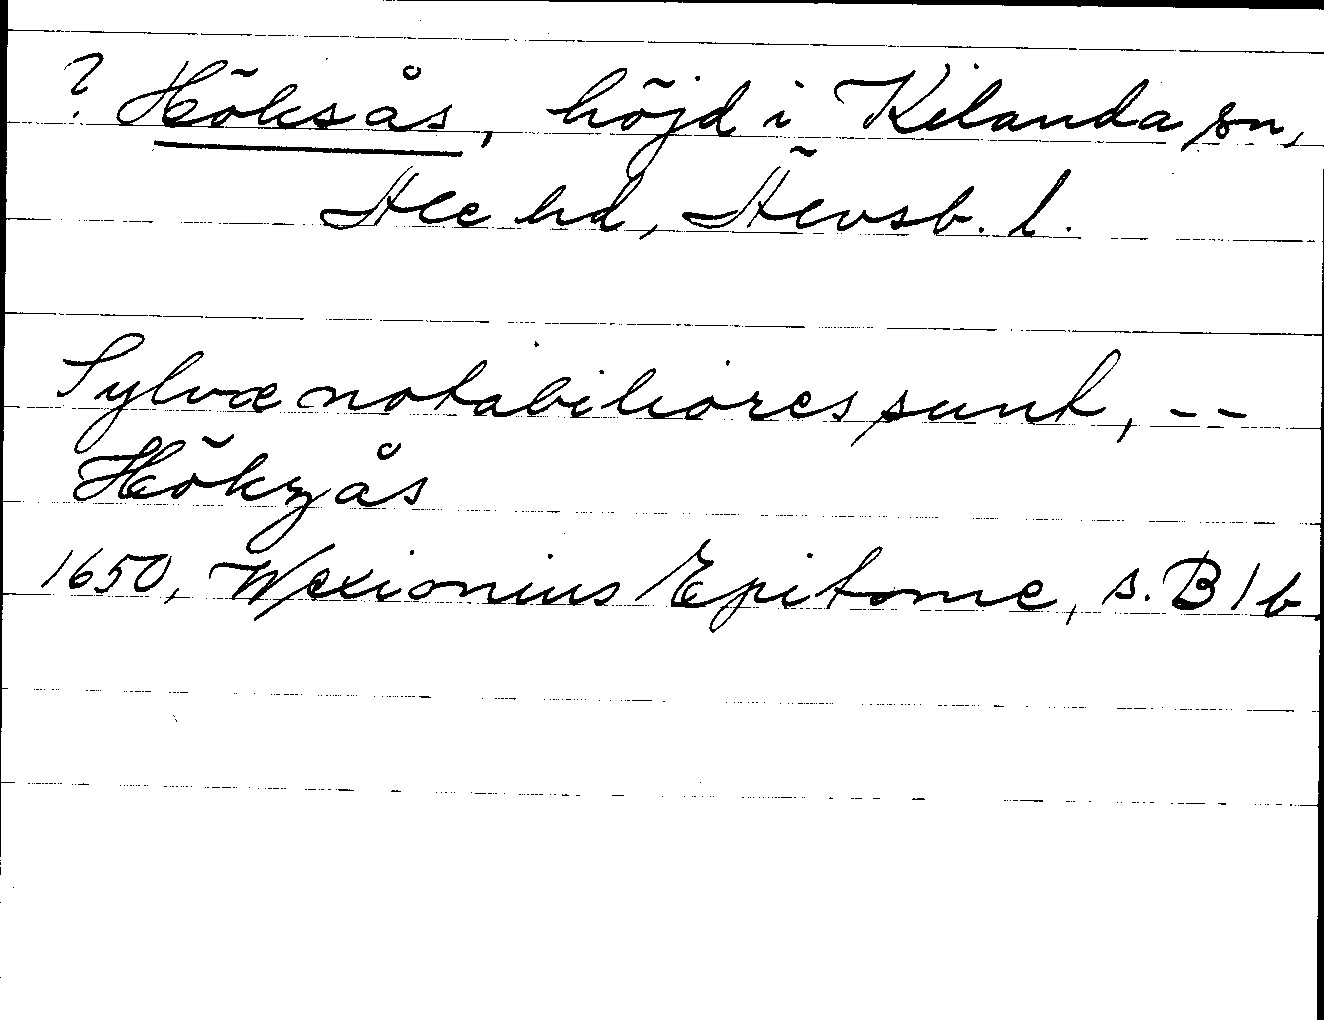 ? Höksås, höjd i Kilanda sn,
Ale hd, Älvsb. l.
Sylvæ notabiliores sunt, --
Hökzås
1650, Wexionius Epitome, s. B 1 b.